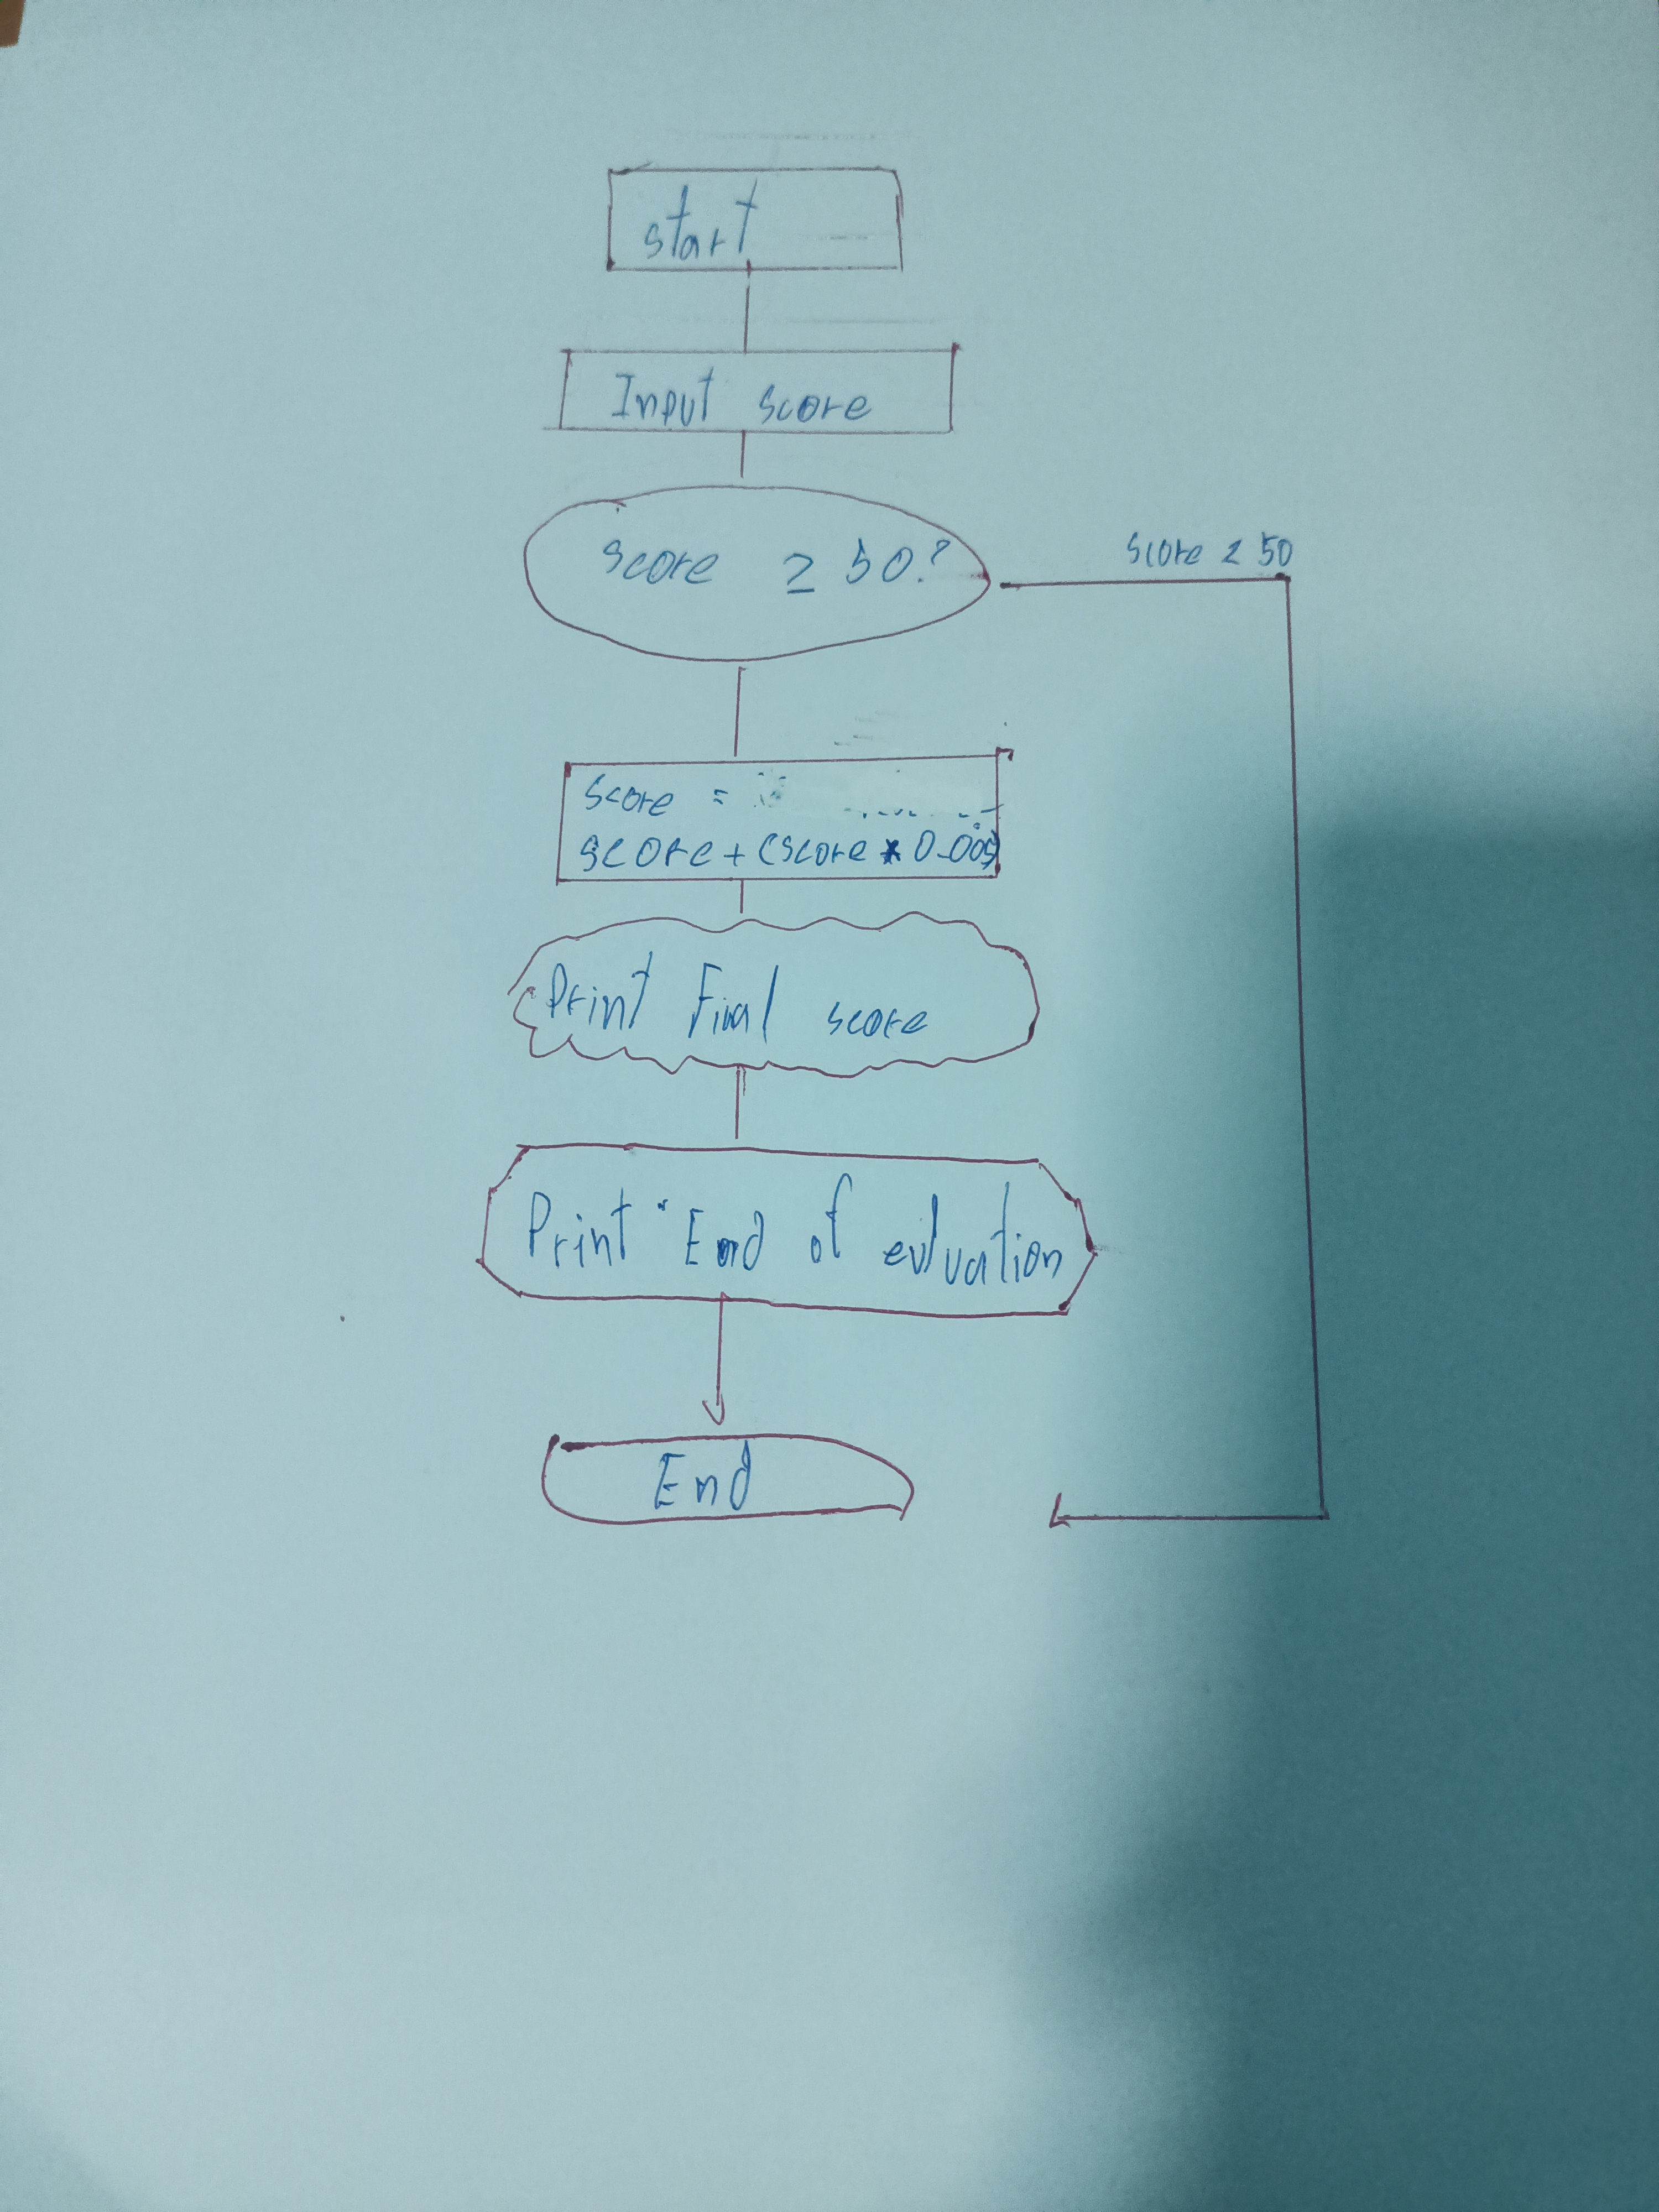 start
Input score
score ≥ 50?
score ≥ 50
score =
score + (score * 0.005)
Print Final score
Print "End of evluation
End